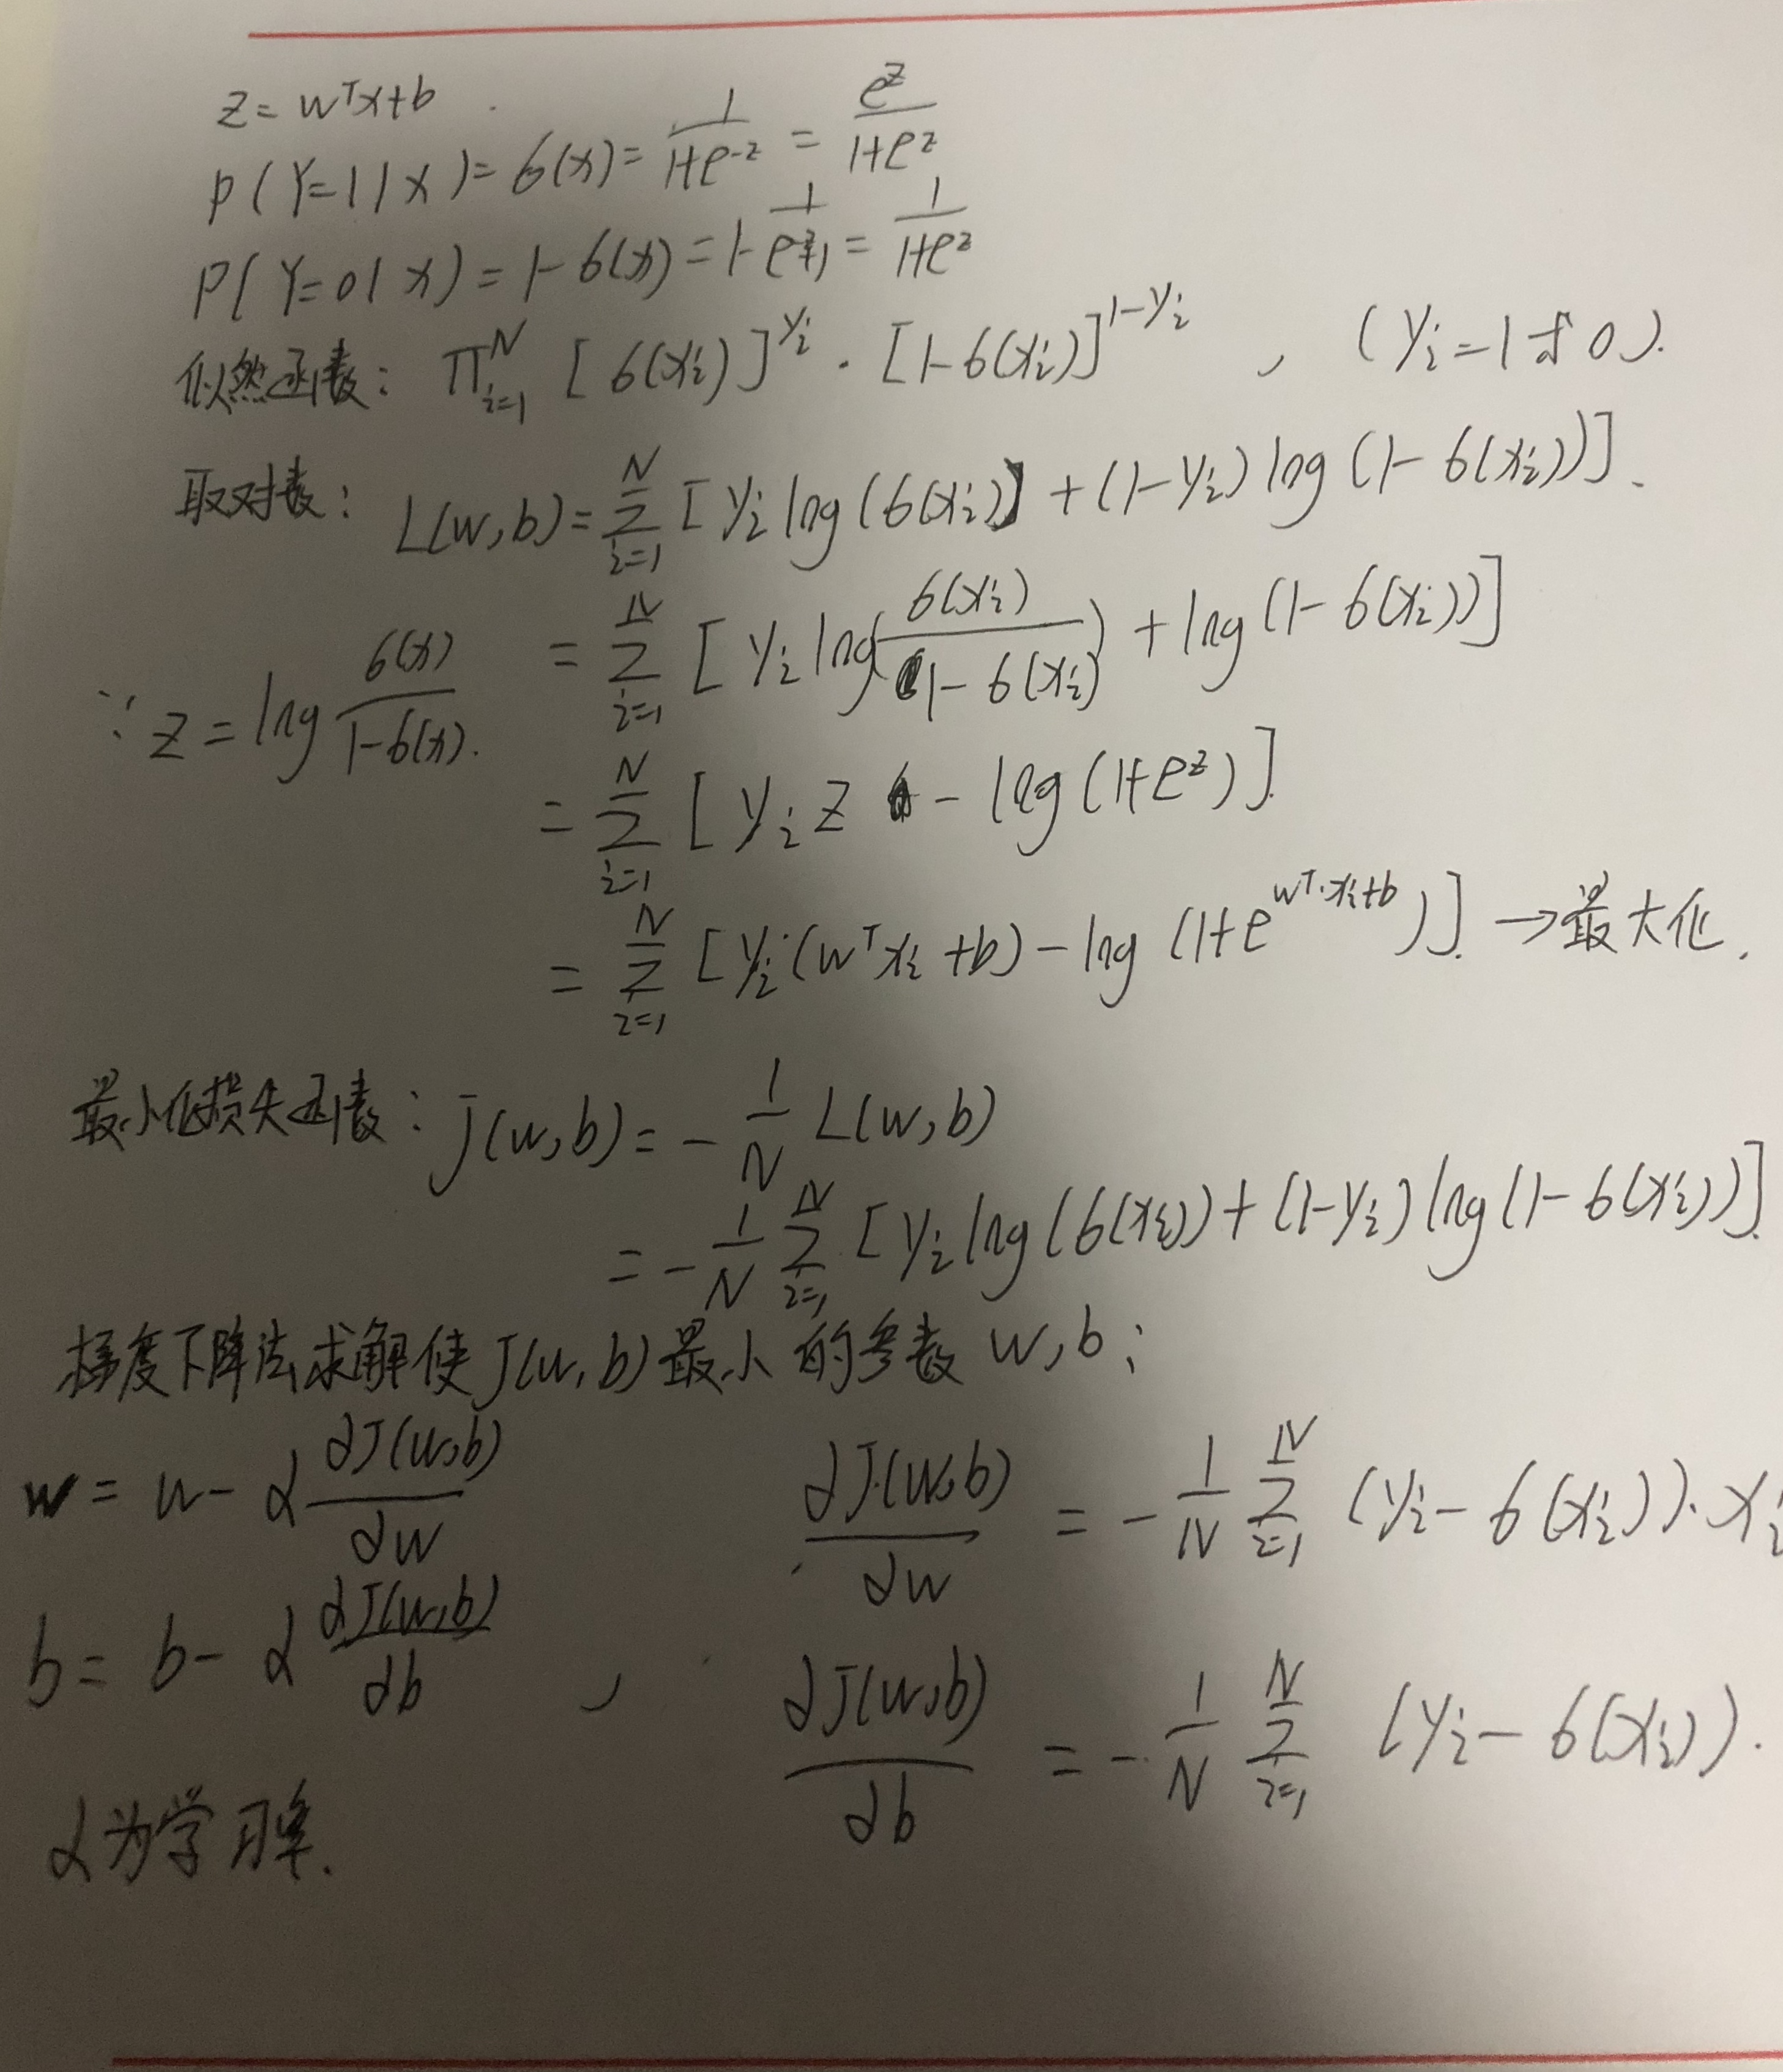 z = wᵀx+b
P(Y=1|x) = σ(x) = 1/(1+e^(-z)) = e^z/(1+e^z)
P(Y=0|x) = 1-σ(x) = 1-1/(e^(-z)+1) = 1/(1+e^z)
似然函数: Π_{i=1}^N [σ(x_i)]^(y_i) · [1-σ(x_i)]^(1-y_i) , (y_i=1或0).
取对数: L(w,b) = Σ_{i=1}^N [y_i log(σ(x_i)) + (1-y_i) log(1-σ(x_i))].
= Σ_{i=1}^N [y_i log(σ(x_i)/(1-σ(x_i))) + log(1-σ(x_i))]
∵ z = log σ(x)/(1-σ(x)).
= Σ_{i=1}^N [y_i z - log(1+e^z)].
= Σ_{i=1}^N [y_i(wᵀx_i+b) - log(1+e^(wᵀ·x_i+b))]. →最大化.
最小化损失函数: J(w,b) = -1/N L(w,b)
= -1/N Σ_{i=1}^N [y_i log(σ(x_i)) + (1-y_i) log(1-σ(x_i))].
梯度下降法求解使J(w,b)最小的参数 w,b:
w = w - α ∂J(w,b)/∂w   ∂J(w,b)/∂w = -1/N Σ_{i=1}^N (y_i-σ(x_i))·x_i
b = b - α ∂J(w,b)/∂b ,   ∂J(w,b)/∂b = -1/N Σ_{i=1}^N (y_i-σ(x_i)).
α为学习率.